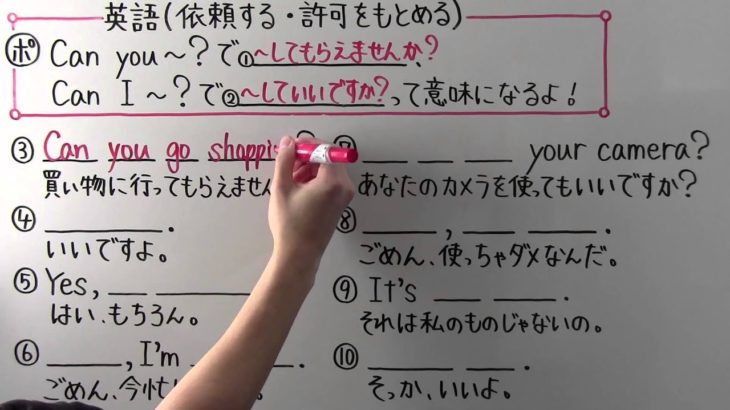 英語(依頼する・許可をもとめる)
ポ Can you ~?で①~してもらえませんか?、
Can I ~?で②~していいですか?って意味になるよ!
③ Can you go shoppi
買い物に行ってもらえません
④ .
いいですよ。
⑤ Yes,
はい、もちろん。
⑥ , I'm .
ごめん、今忙
your camera?
あなたのカメラを使ってもいいですか?
⑧ , .
ごめん、使っちゃダメなんだ。
⑨ It's .
それは私のものじゃないの。
⑩ .
そっか、いいよ。